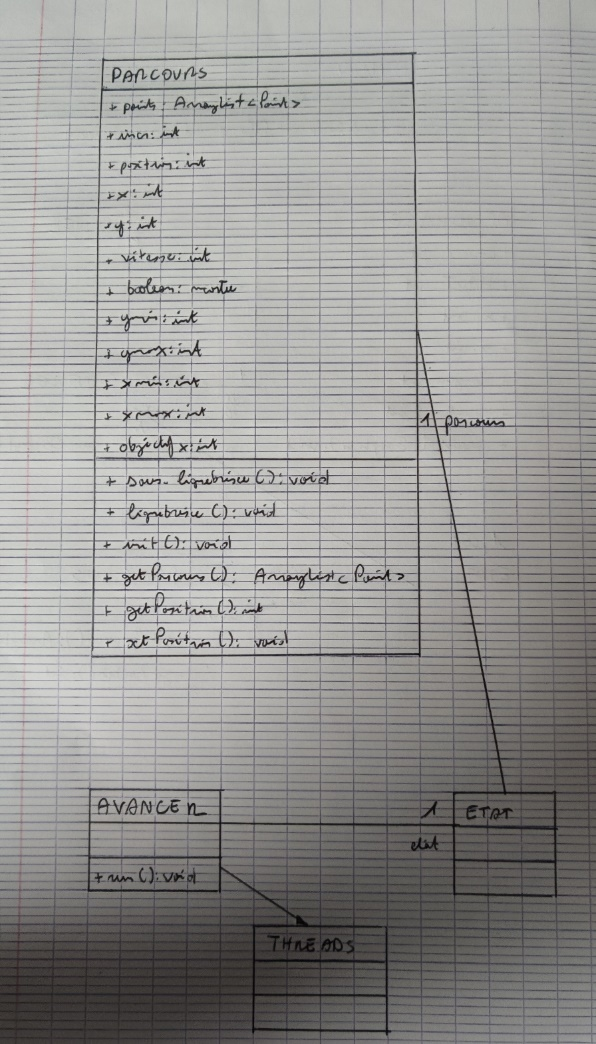 PARCOURS
+ points : Arraylist<Point>
+ incr : int
+ position : int
+ x : int
+ y : int
+ vitesse : int
+ boolean : monte
+ ymin : int
+ ymax : int
+ xmin : int
+ xmax : int
+ objectif x : int
+ sous-lignebrisee () : void
+ lignebrisee () : void
+ init () : void
+ getParcours () : Arraylist<Point>
+ getPosition () : int
+ setPosition () : void
1 parcours
AVANCER
+ run () : void
1
etat
ETAT
THREADS